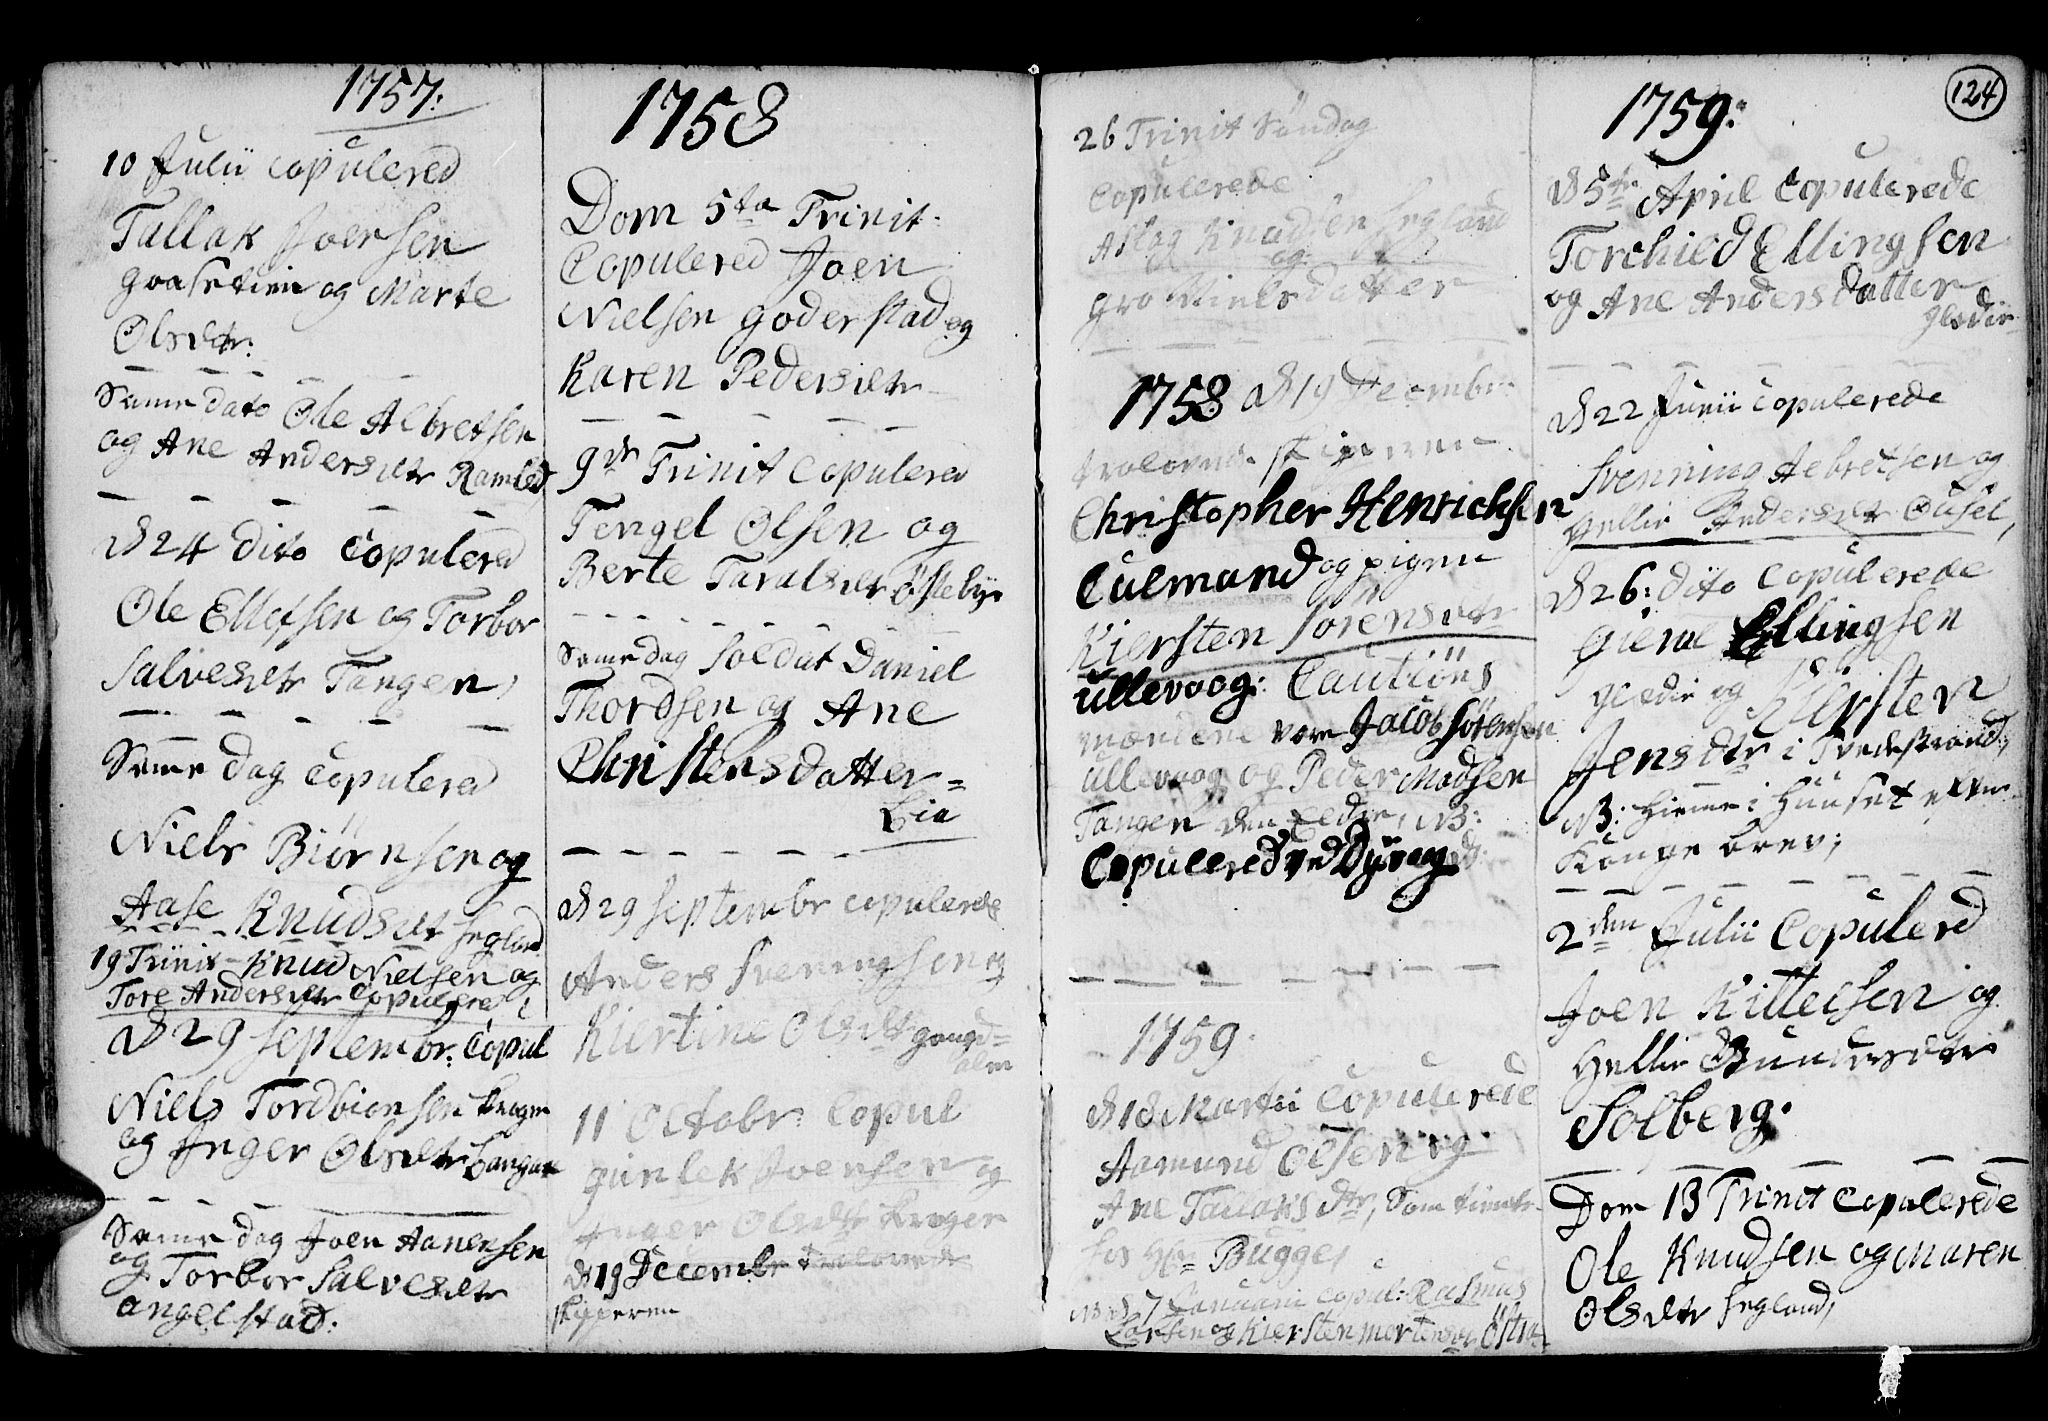 1757:
10 Julii Copulered
Tallak Joersen
Goasetien og Marte
Olsdtr:
Same dato Ole Albretsen
og Ane Andersdtr Ramled
d 24 dito Copulered
Ole Ellefsen og Torbor
Salvesdtr Tangen,
Same dag Copulered
Niels Biørnsen og
Aase Knudsdtr Segland
19 Trinit Knud Nielsen og
Tore Andersdtr Copulered
d 29 Septembr: Copul
Niels Tordbiønsen Kroger
og Inger Olsdtr Langan
Same dag Joen Aanensen
og Torbor Salvesdtr
Angelstad:
1758
Dom 5ta Trinit:
Copulered Joen
Nielsen Goderstad og
Karen Pedersdtr
9de Trinit Copulered
Tengel Olsen og
Berte Taralsdtr Østebye
Same dag Soldat Daniel
Thordsen og Ane
Christensdatter=
Lia
d 29 Septembr copulerede
Anders Sveningsen og
Kiertine Olsdtr Gangd=
alen
11 Octobr: Copul
Gunlek Joensen og
Inger Olsdtr Kroger
d 19 Decembr trolovede
Skipperen
26 Trinit Søndag
Copulerede
Aslag Knudsen Segland
og
Gro Nielsdatter
1758 d 19 Decembr:
trolovede Skipperen
Christopher Henrichsen
Culmand og pigen
Kiersten Sørensdtr
Ullevaag: Cautions
mændene vare Jacob Sørensen
Ullevaag og Peder Madsen
Tangen den Eldre, NB:
Copulered ved Dyvaag
1759.
d 18 Martii Copulerede
Aamund Olsen og
Ane Tallaksdtr, Som tiente
hos Hr: Bugge,
NB d 7 Januarii Copul: Rasmus
Larsen og Kiersten Mortensdr Østra
124
1759:
d 5te April Copulerede
Torchild Ellingsen
og Ane Andersdatter
Gledie
d 22 Junii Copulerede
Svenning Aebretsen og
Hellie Andersdtr Ousel,
d 26: dito Copulerede
Gierul Ellingsen
Gledie og Kiersten
Jensdtr i Tvedestrand,
NB: hieme i Huuset efter
Konge brev;
2den Julii Copulered
Joen Kittelsen og
Hellie Gundersdtr
Solberg.
Dom 13 Trinit Copulerede
Ole Knudsen og Maren
Olsdtr Segland,